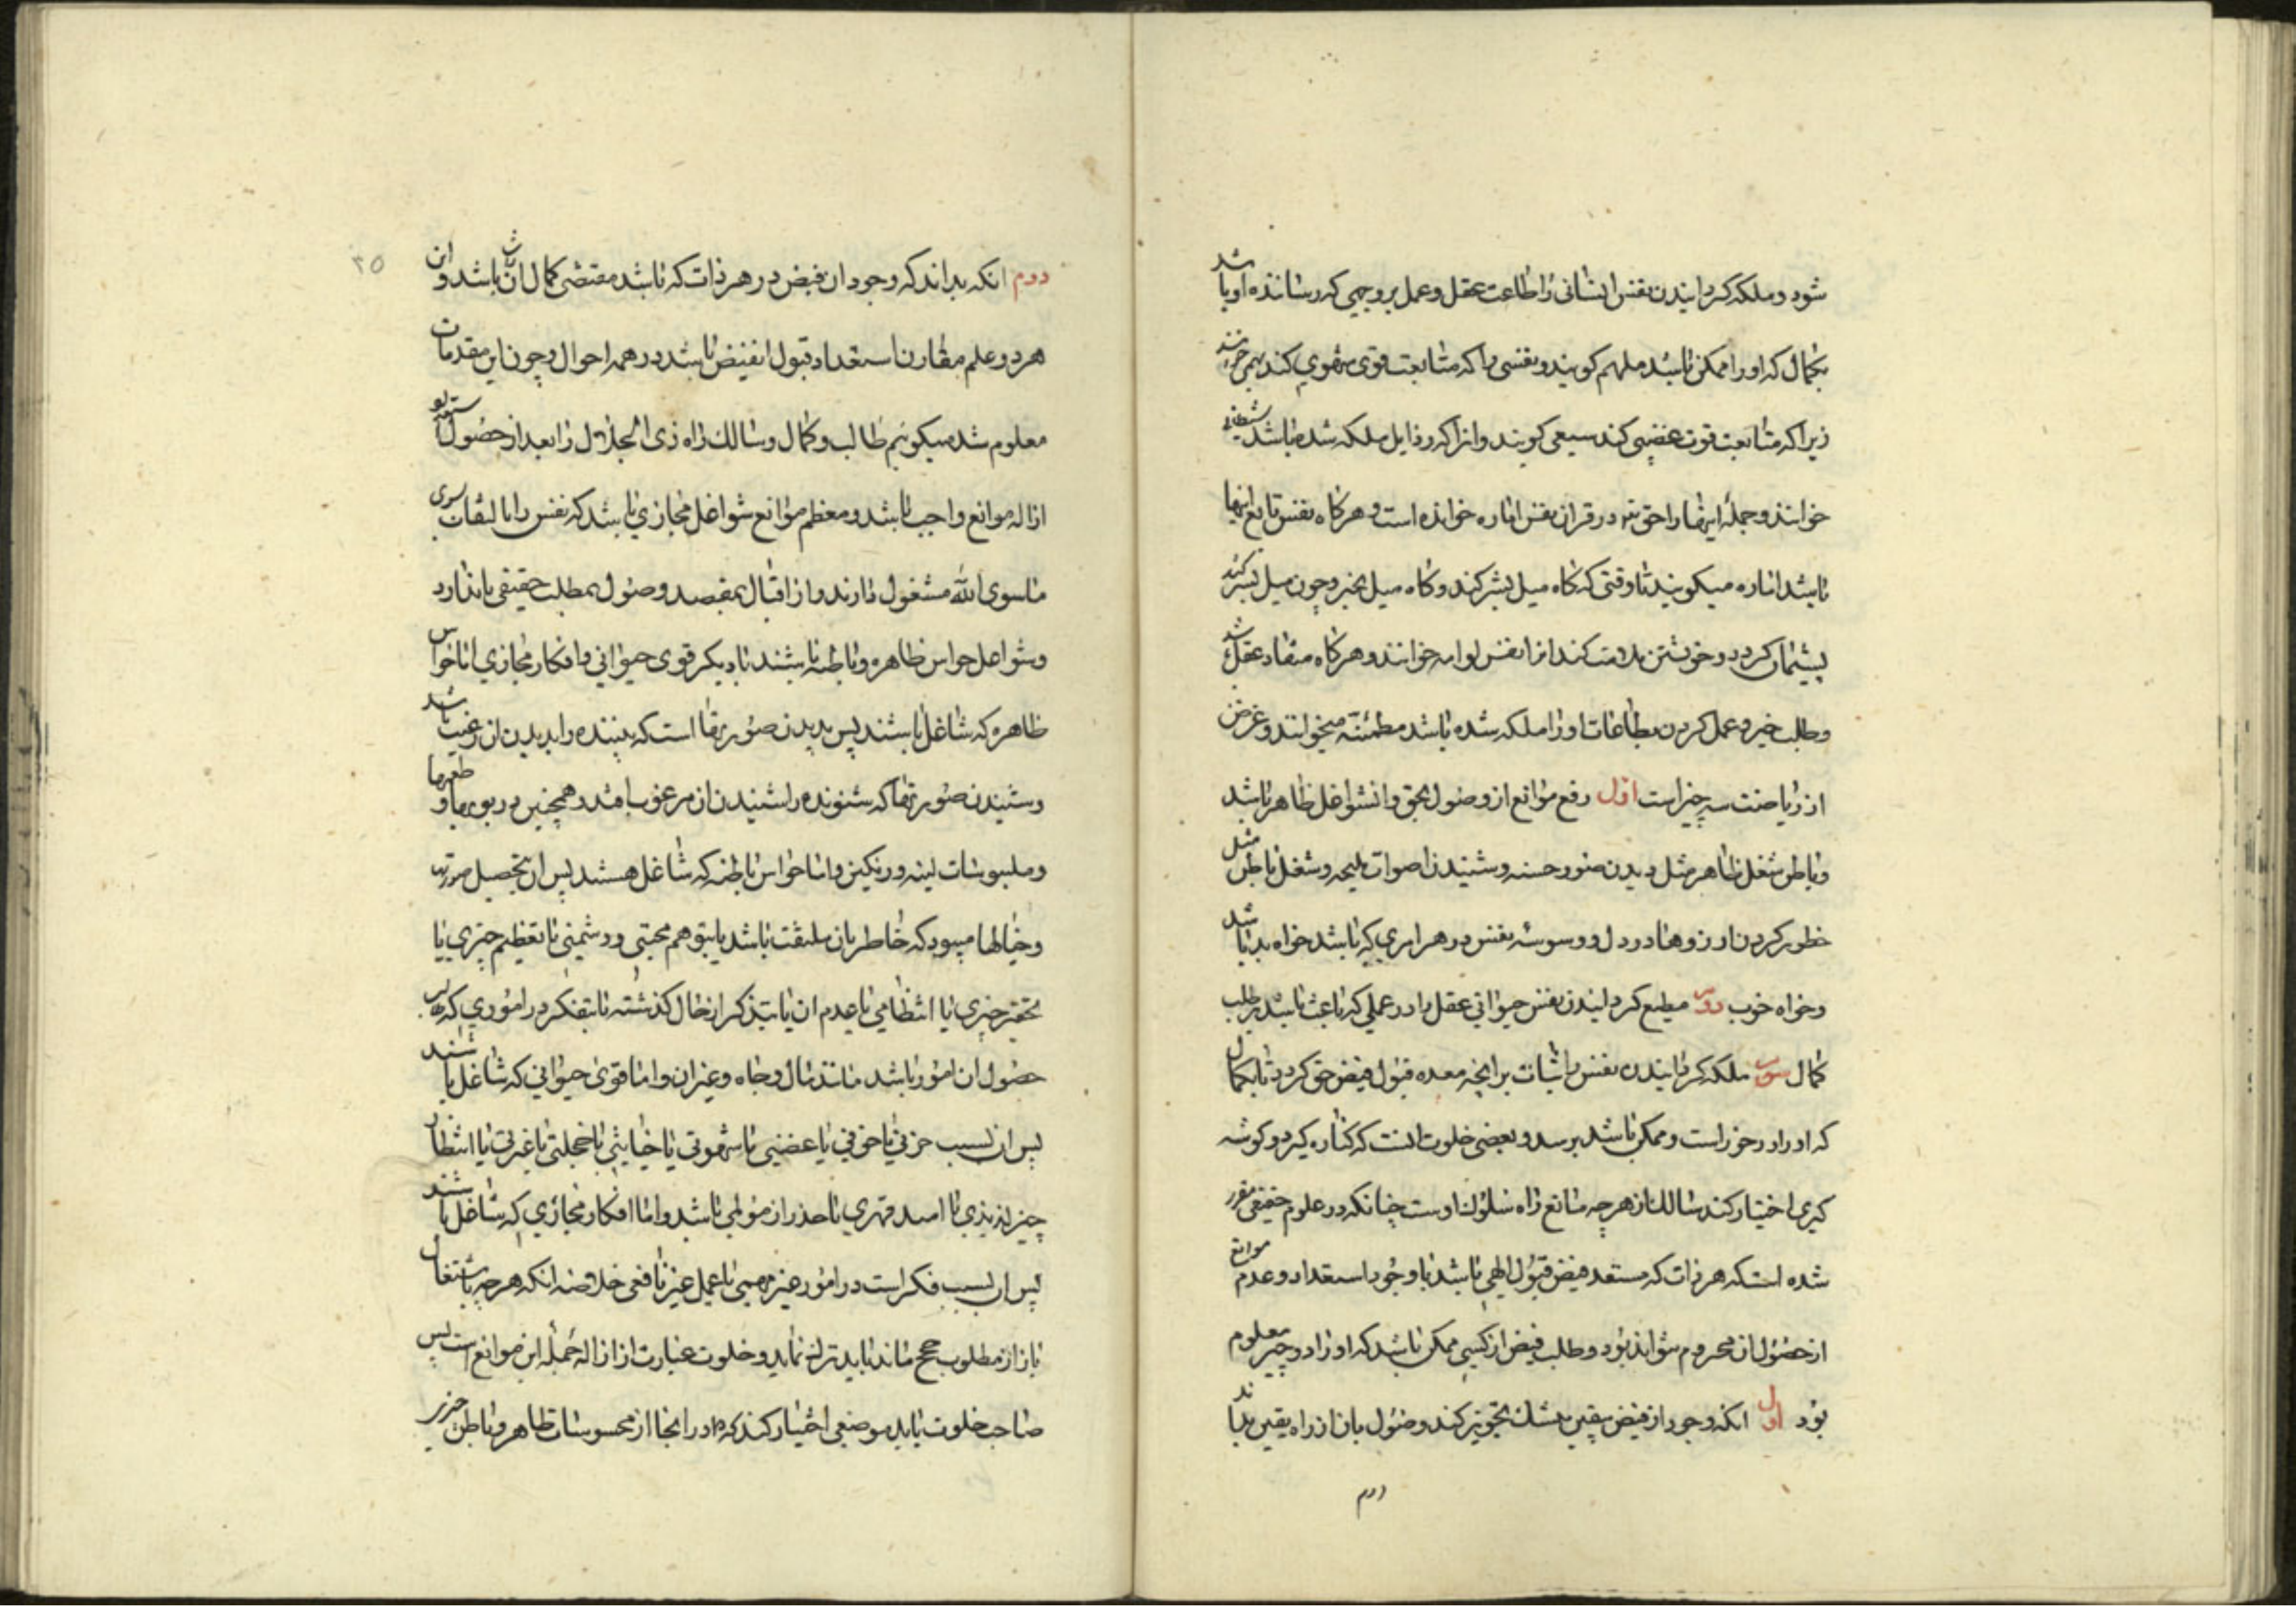 شود و ملکه کردانیدن نفس انسانی را طاعت عقل و عمل بر وجهی که رساننده او باشد
بکمال که او را ممکن باشد ملهم کویند و نفسی را که متابعت قوی شهوی کند بهیمی خوانند
زیرا که متابعت قوت غضبی کند سبعی کویند وانرا که رذایل ملکه شده باشد شیطانی
خوانند و جمله اینها را حق تع در قران نفس اماره خوانده است و هر کاه نفس تابع اینها
باشد اماره میکویند تا وقتی که کاه میل بشر کند و کاه میل بخیر و چون میل بشر کند
پشیمان کردد و خویشتن ملامت کند انرا نفس لوامه خوانند و هر کاه منقاد عقل باشد
و طلب خیر و عمل کردن بطاعات او را ملکه شده باشد مطمئنه میخوانند و غرض
از ریاضت سه چیز است اول رفع موانع از وصول بحق وانشواغل ظاهر باشد
و باطن شغل ظاهر مثل دیدن صور حسنه و شنیدن اصوات ملیحه و شغل باطن مثل
خطور کردن ارزوها در دل و وسوسه نفس در هر امری که باشد خواه بد باشد
و خواه خوب دوم مطیع کردانیدن نفس حیوانی عقل را در عملی که باعث باشد بر طلب
کمال سوم ملکه کردانیدن نفس باثبات برانچه معده قبول فیض حق کردد تا بکمال
که او را در خور است و ممکن باشد برسد و بعضی خلوت انست که کناره کیرد و کوشه
کیری اختیار کند سالک از هر چه مانع راه سلوک اوست چنانکه در علوم حقیقی مقرر
شده است که هر ذات که مستعد فیض قبول الهی باشد با وجود استعداد و عدم موانع
از حصول ان محروم نتواند بود و طلب فیض از کسی ممکن باشد که او را دو چیز معلوم
بود اول انکه وجود از فیض بیقین بیشک تجویز کند و وصول بان از راه یقین بداند
دوم
۲۵
دوم انکه بداند که وجود ان فیض در هر ذات که باشد مقتضی کمال ان ذات باشد و این
هر دو علم مقارن استعداد قبول انفیض باشد در همه احوال و چون این مقدمات
معلوم شد میکوئیم طالب و کمال و سالک راه ذی الجلال را بعد از حصول استعداد
ازاله موانع واجب باشد و معظم موانع شواغل مجازی باشد که نفس را بالتفات بسوی
ماسوی الله مشغول دارند و از اقبال بمقصد و صول بمطلب حقیقی باندارد
و شواغل حواس ظاهره و باطنه باشند یا دیکر قوی حیوانی و افکار مجازی اما حواس
ظاهره که شاغل باشند پس بدیدن صورتها است که بیننده را بدیدن ان رغبت باشد
و شنیدن صورتها که شنونده را شنیدن ان مرغوب افتد و همچنین در بویها و طعمها
و ملبوسات لینه و رنکین و اما حواس باطنه که شاغل هستند پس ان بتحصیل صورتها
و خیالها میبود که خاطر بان ملتفت باشد یا بتوهم محبتی و دشمنی یا تعظیم چیزی یا
تحقیر چیزی یا انتظامی یا عدم ان یا بتذکر از حال کذشته یا بتفکر در اموری که طالب
حصول ان امور باشد مانند مال و جاه و غیر ان و اما قوی حیوانی که شاغل باشند
پس ان بسبب حزنی یا خوفی یا غضبی یا شهوتی یا خیانتی یا خجلتی یا غیرتی یا انتظار
چیز لذیذی یا امید قهری یا حذر از مؤلمی باشد و اما افکار مجازی که شاغل باشند
پس ان بسبب فکر است در امور غیر مهمی یا عمل غیر نافعی خلاصه انکه هر چه باشتغال
باز از مطلوب محجوب ماند باید ترک نماید و خلوت عبارت از ازاله جمله این موانع است پس
صاحب خلوت باید موضعی اختیار کند که او را در انجا از محسوسات ظاهر و باطن چیزی